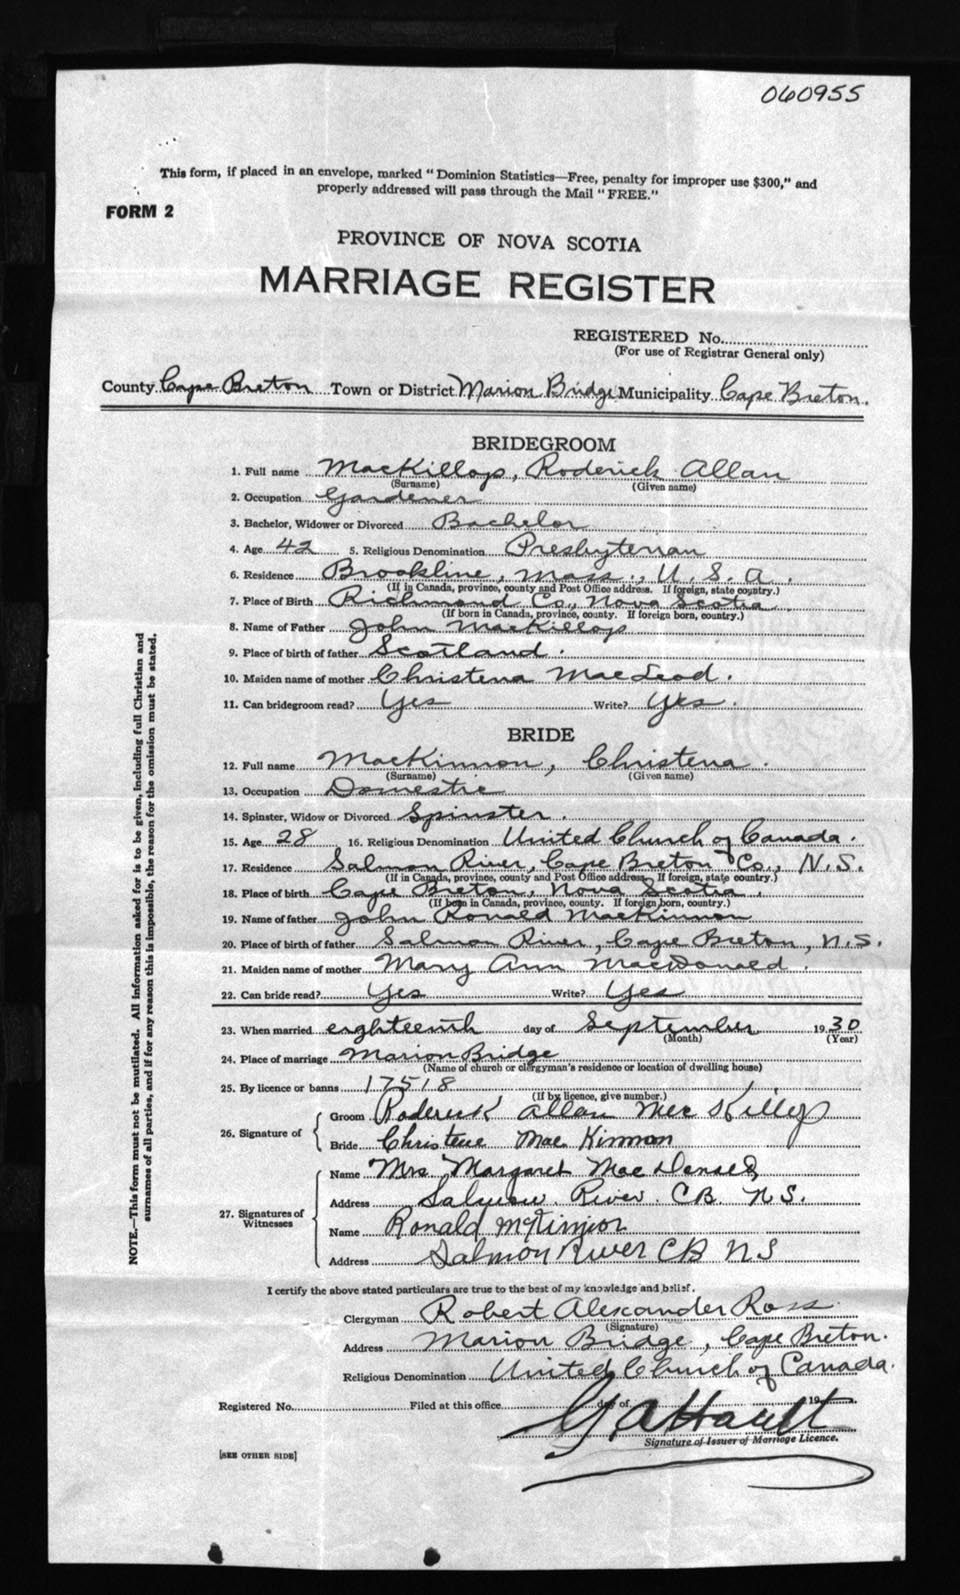 060955
This form, if placed in an envelope, marked "Dominion Statistics—Free, penalty for improper use $300," and
properly addressed will pass through the Mail "FREE."
FORM 2
PROVINCE OF NOVA SCOTIA
MARRIAGE REGISTER
REGISTERED No.
(For use of Registrar General only)
County Cape Breton Town or District Marion Bridge Municipality Cape Breton.
BRIDEGROOM
1. Full name MacKillop, Roderick Allan
(Surname) (Given name)
2. Occupation Gardener
3. Bachelor, Widower or Divorced Bachelor
4. Age 42 5. Religious Denomination Presbyterian
6. Residence Brookline, Mass., U.S.A.
(If in Canada, province, county and Post Office address. If foreign, state country.)
7. Place of Birth Richmond Co., Nova Scotia
(If born in Canada, province, county. If foreign born, country.)
8. Name of Father John MacKillop
9. Place of birth of father Scotland.
10. Maiden name of mother Christena MacLeod.
11. Can bridegroom read? Yes Write? Yes.
BRIDE
12. Full name MacKinnon, Christena.
(Surname) (Given name)
13. Occupation Domestic
14. Spinster, Widow or Divorced Spinster.
15. Age 28 16. Religious Denomination United Church of Canada.
17. Residence Salmon River, Cape Breton Co., N.S.
(If in Canada, province, county and Post Office address. If foreign, state country.)
18. Place of birth Cape Breton, Nova Scotia.
(If born in Canada, province, county. If foreign born, country.)
19. Name of father John Ronald MacKinnon
20. Place of birth of father Salmon River, Cape Breton, N.S.
21. Maiden name of mother Mary Ann MacDonald.
22. Can bride read? Yes Write? Yes
23. When married eighteenth day of September 1930
(Month) (Year)
24. Place of marriage Marion Bridge
(Name of church or clergyman's residence or location of dwelling house)
25. By licence or banns 17518
(If by licence, give number.)
26. Signature of
Groom Roderick Allan MacKillop
Bride Christene MacKinnon
27. Signatures of Witnesses
Name Mrs. Margaret
Address Salmon River. C.B. N.S.
Name Ronald
Address Salmon River CB NS
I certify the above stated particulars are true to the best of my knowledge and belief.
Clergyman Robert Alexander Ross
(Signature)
Address Marion Bridge, Cape Breton.
Religious Denomination United Church of Canada.
Registered No. Filed at this office day of 19
Signature of Issuer of Marriage Licence.
[SEE OTHER SIDE]
NOTE.—This form must not be mutilated. All information asked for is to be given, including full Christian and
surnames of all parties, and if for any reason this is impossible, the reason for the omission must be stated.